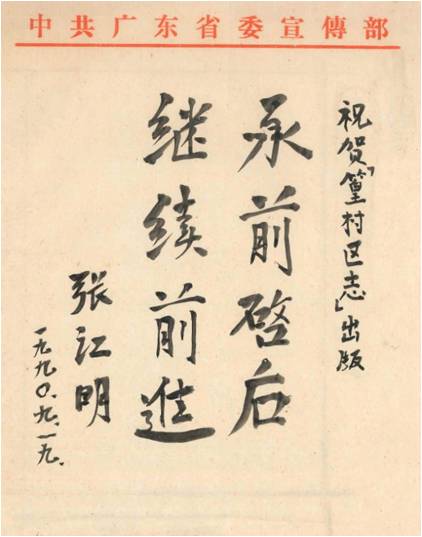 中共广东省委宣傳部
祝贺「篁村区志」出版
承前啓后
继续前進
张江明
一九九〇.九.一九.